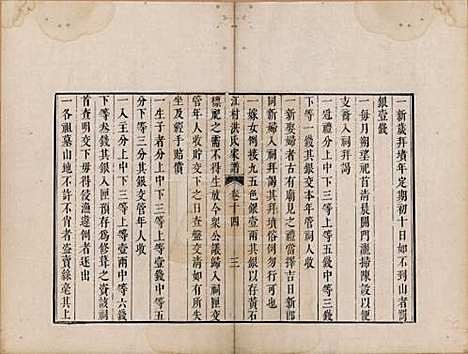 一新歲拜墳年定期初十日如不到山者罰
銀壹錢
一每月朔望祀首清晨開門灑掃陳設以便
支裔入祠拜謁
一冠禮分上中下三等上等一兩中等五錢
下等一錢其銀交本年管年人收
一新娶婦者古有廟見之禮當擇吉日新郎
同新婦入祠拜謁其拜墳俗例勿行可也
一嫁女例接九五色銀壹兩其銀以存黃石
江村洪氏家譜 卷十四 三
標祀之需不得生放今衆公議歸入祠匣交
管年人收貯交下首查盤明白如有所失
坐及經手賠償
一生子者分上中下三等上等壹兩中等五
分下等三分其銀交管年人收
一入主分上中下三等上等壹兩中等六錢
下等叁錢其銀入匣存爲修葺之資該祠
首查明交下毋得侵漁違例者逐出
一各祖墓山地不許不肖者盜賣緣毫其上